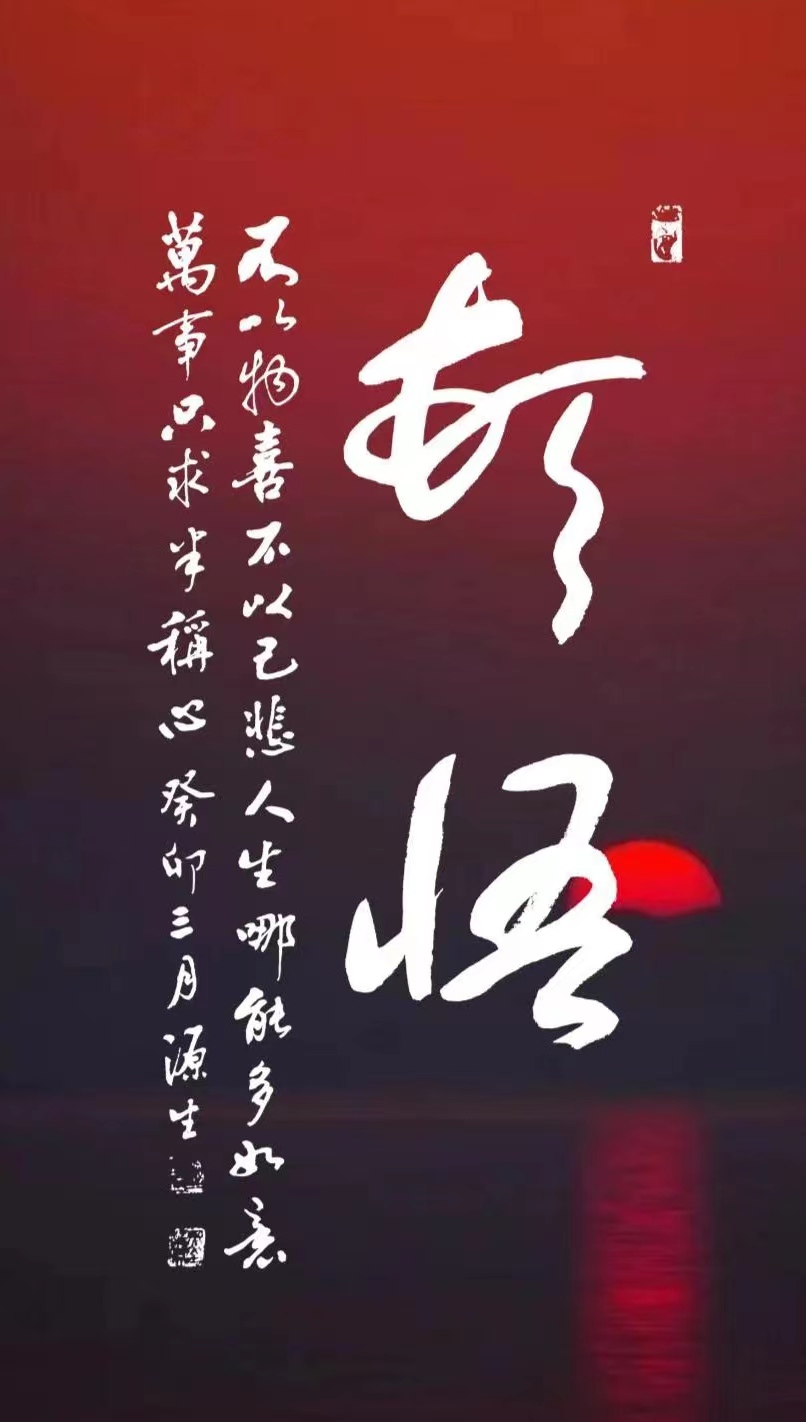 悟
不以物喜不以己悲人生哪能多如意
萬事只求半稱心癸卯三月源生